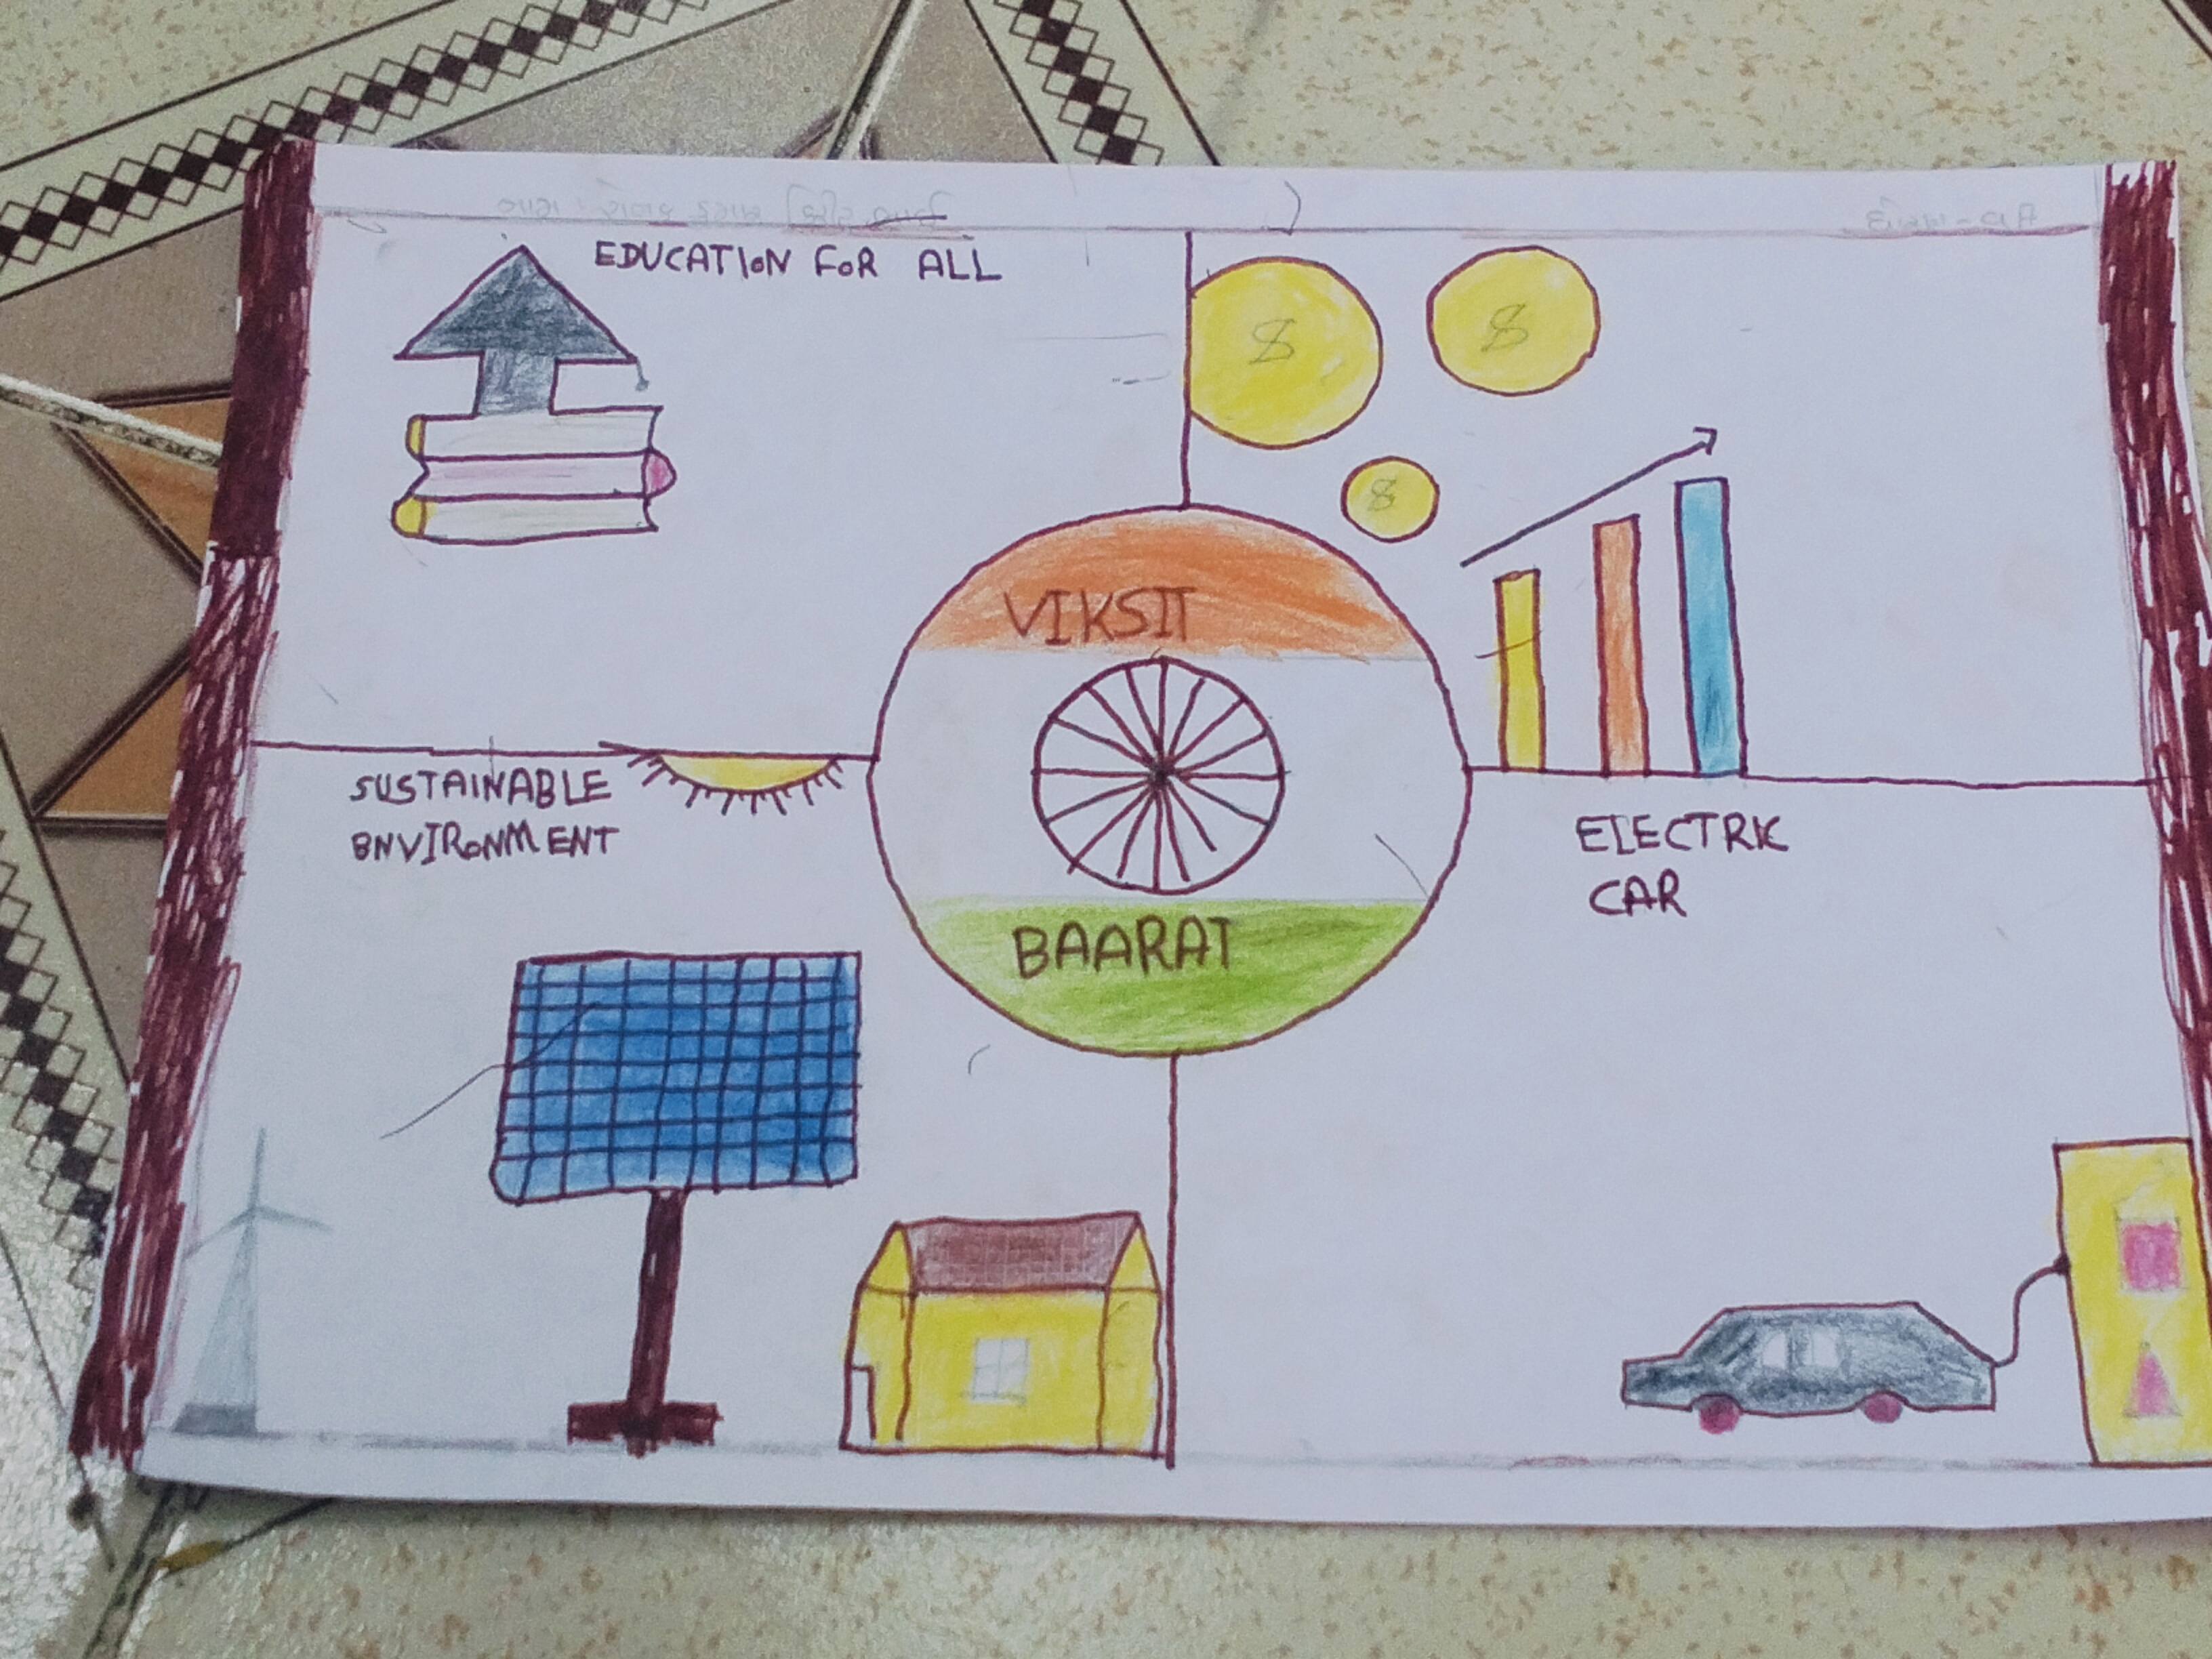 EDUCATION FOR ALL
$
$
$
VIKSIT
BAARAT
SUSTAINABLE
ENVIRONMENT
ELECTRIC
CAR